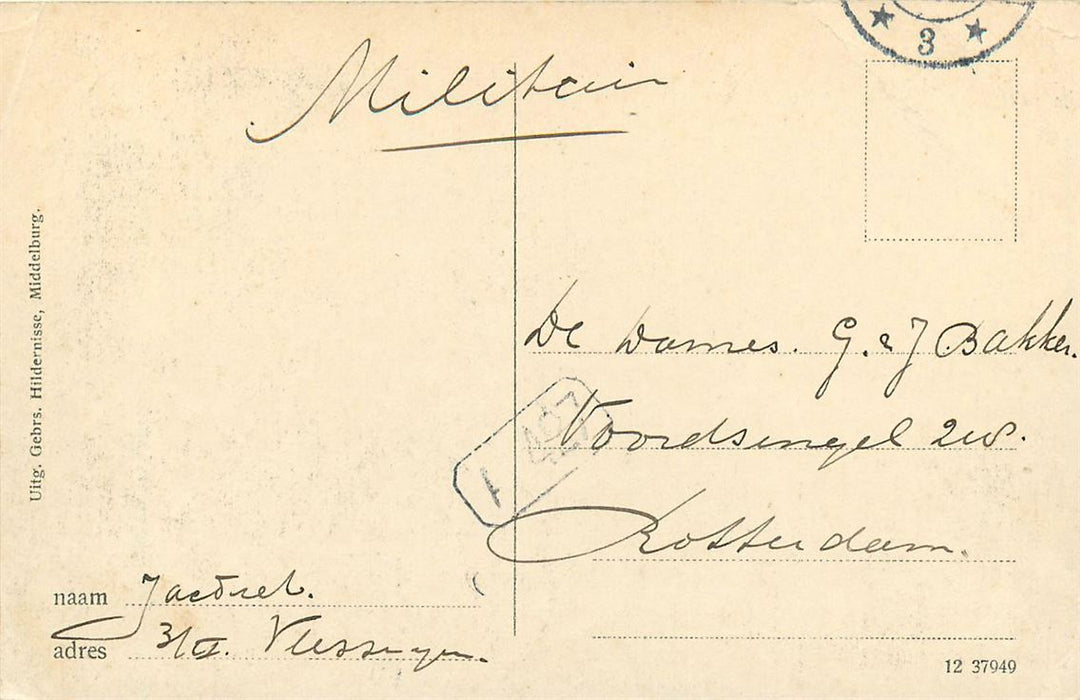 3
Militair
Uitg. Gebrs. Hildernisse, Middelburg.
De Dames. G. & J Bakker.
Noordsingel
Rotterdam.
naam
adres Vlissingen.
12 37949